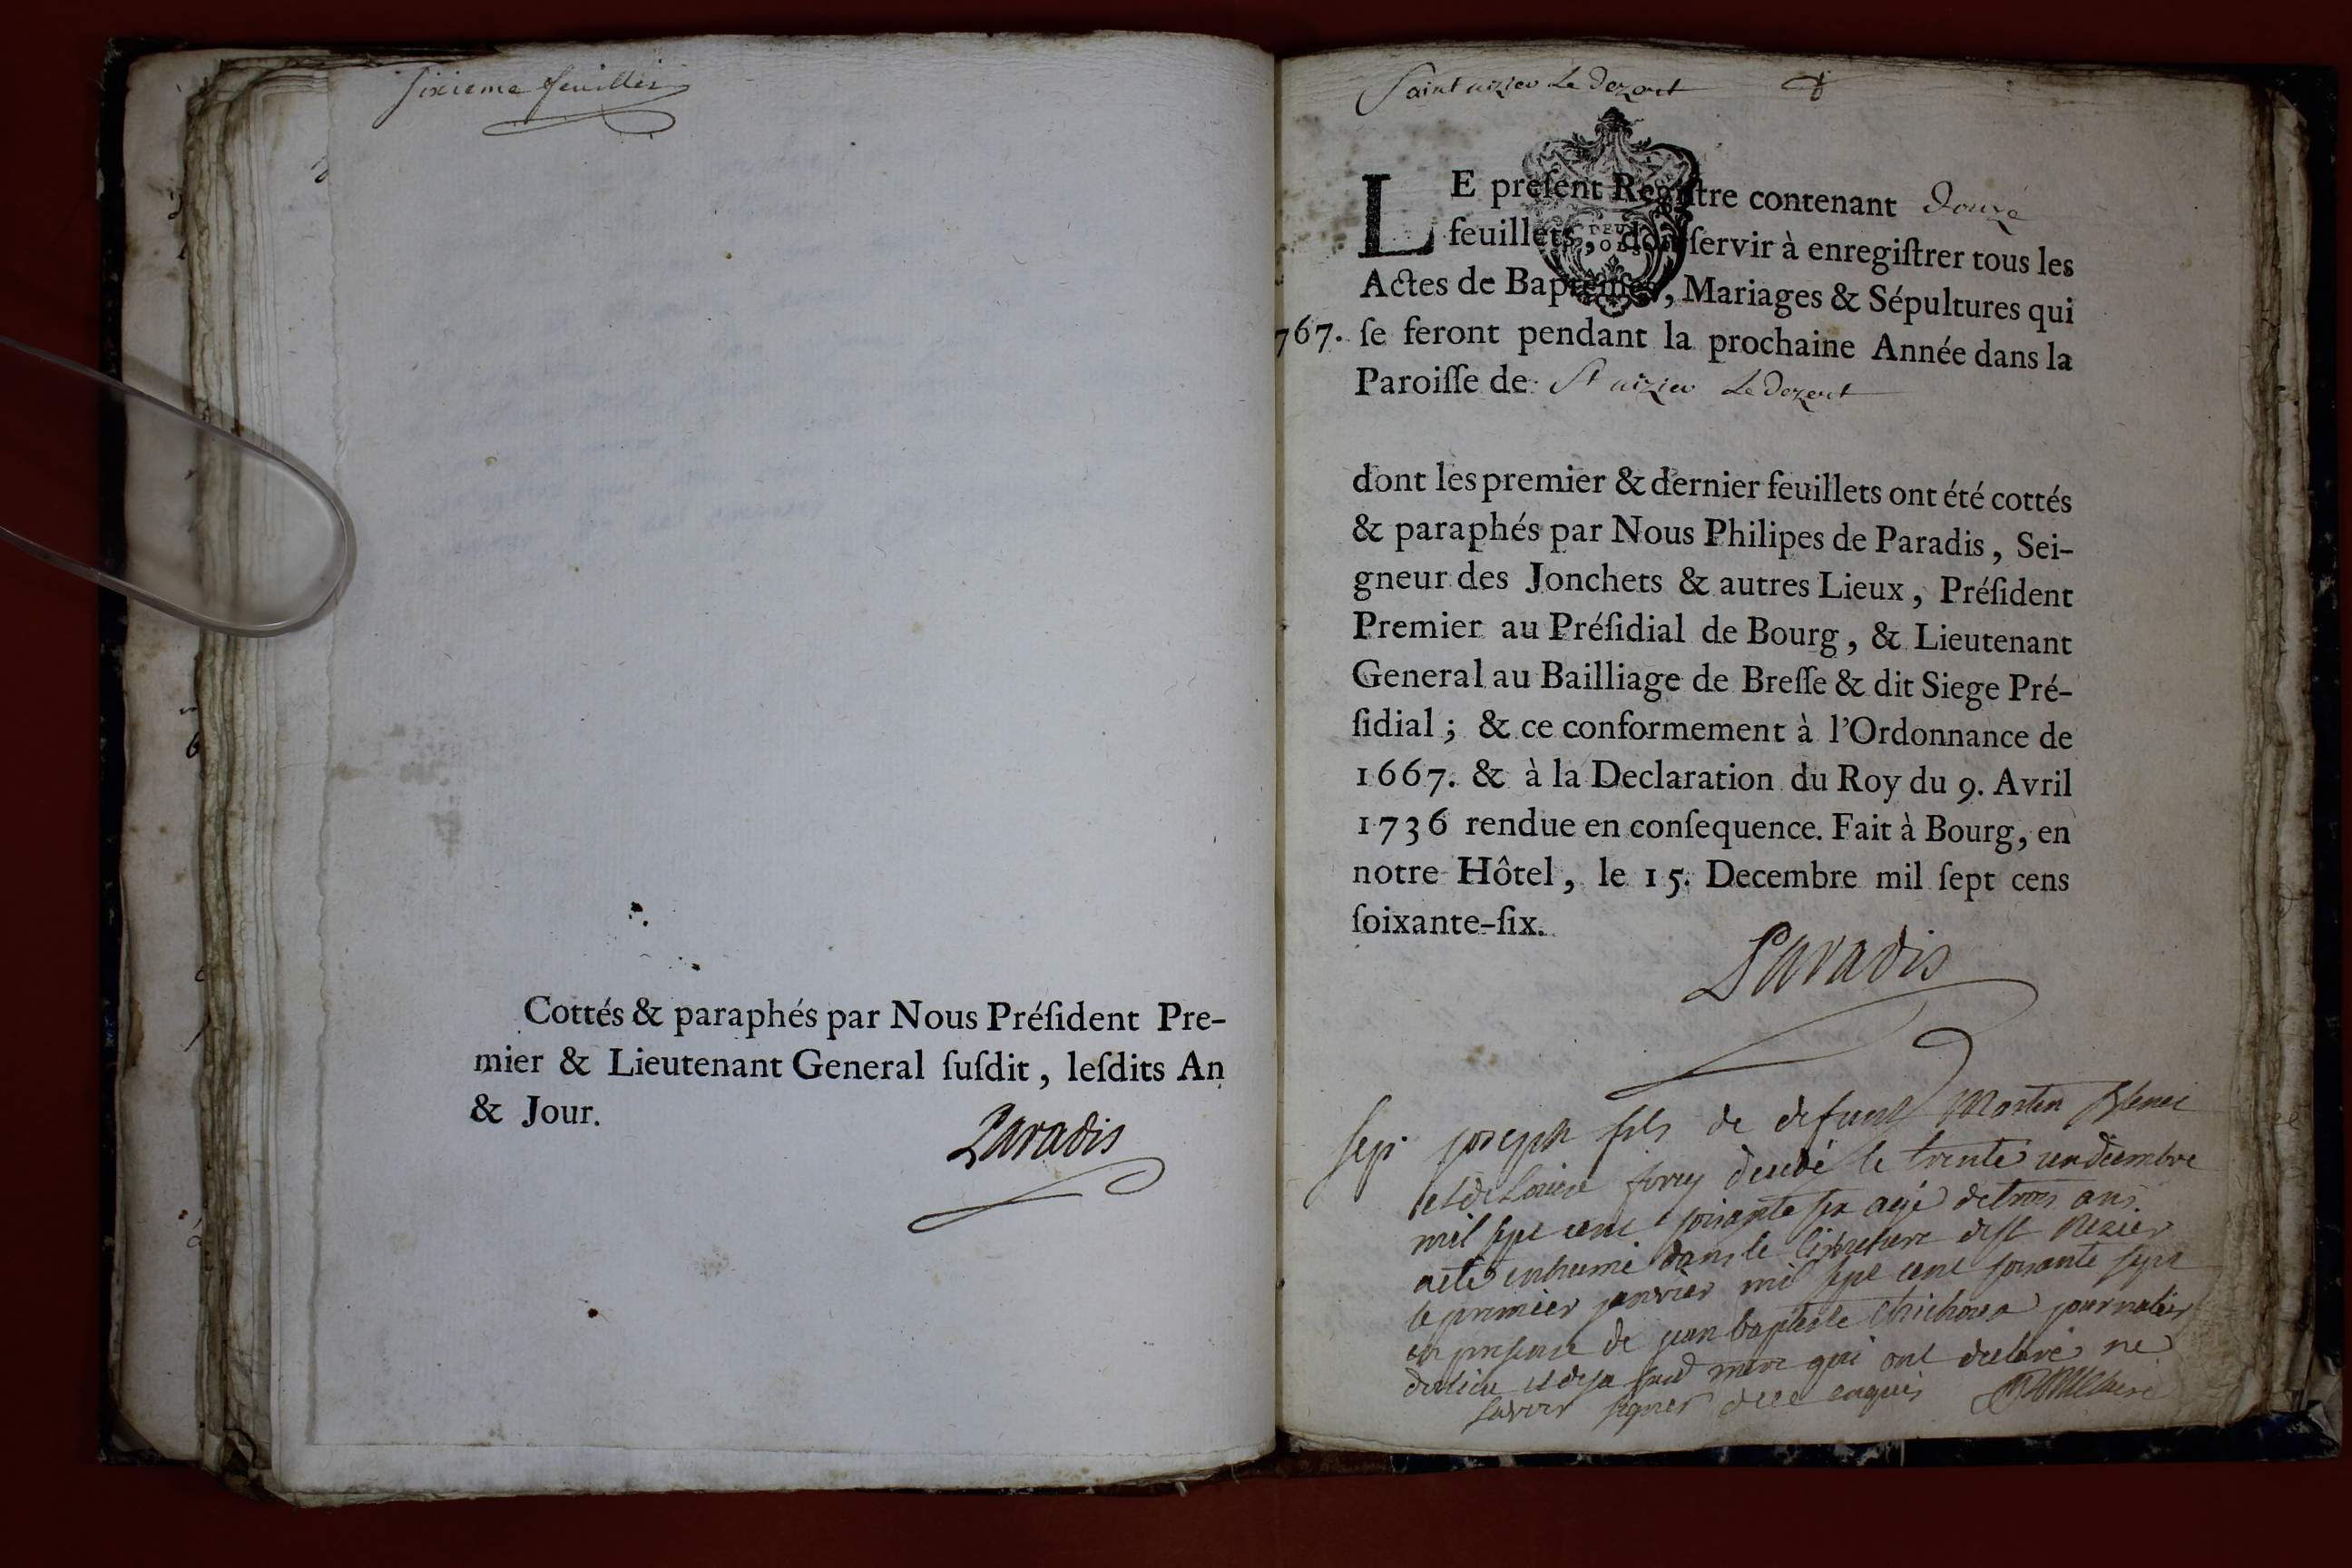 sixieme feuillet
Cottés & paraphés par Nous Préſident Pre-
mier & Lieutenant General ſuſdit, leſdits An
& Jour.
Paradis
Saint nizier Le Dezert
LE preſent Regiſtre contenant Douze
feuillets, doit ſervir à enregiſtrer tous les
Actes de Baptêmes, Mariages & Sépultures qui
767. ſe feront pendant la prochaine Année dans la
Paroiſſe de St nizier Le Dezert
dont les premier & dernier feuillets ont été cottés
& paraphés par Nous Philipes de Paradis, Sei-
gneur des Jonchets & autres Lieux, Préſident
Premier au Préſidial de Bourg, & Lieutenant
General au Bailliage de Breſſe & dit Siege Pré-
ſidial; & ce conformement à l'Ordonnance de
1667. & à la Declaration du Roy du 9. Avril
1736 rendue en conſequence. Fait à Bourg, en
notre Hôtel, le 15. Decembre mil ſept cens
ſoixante-ſix.
Paradis
sep. joseph fils de defunt Martin
et de decedé le trente un decembre
mil sept cent soixante six agé de trois ans
a eté inhumé dans le cimetiere de st Nizier
le premier janvier mil sept cent soixante sept
en presence de jean baptiste journalier
dudit lieu et de sa mere qui ont declaré ne
savoir signer de ce enquis